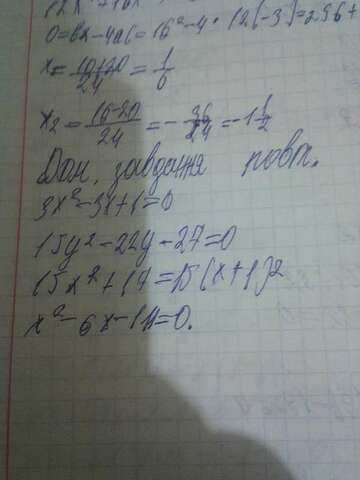 12x²+16x
D=bx-4ac=16²-4·12(-3)=256+
x=10+20/24=1/6
x₂=16-20/24=-36/24=-1 1/2
Дом. завдання повт.
3x²-3x+1=0
15y²-22y-27=0
15x²+17=15(x+1)²
x²-6x-11=0.